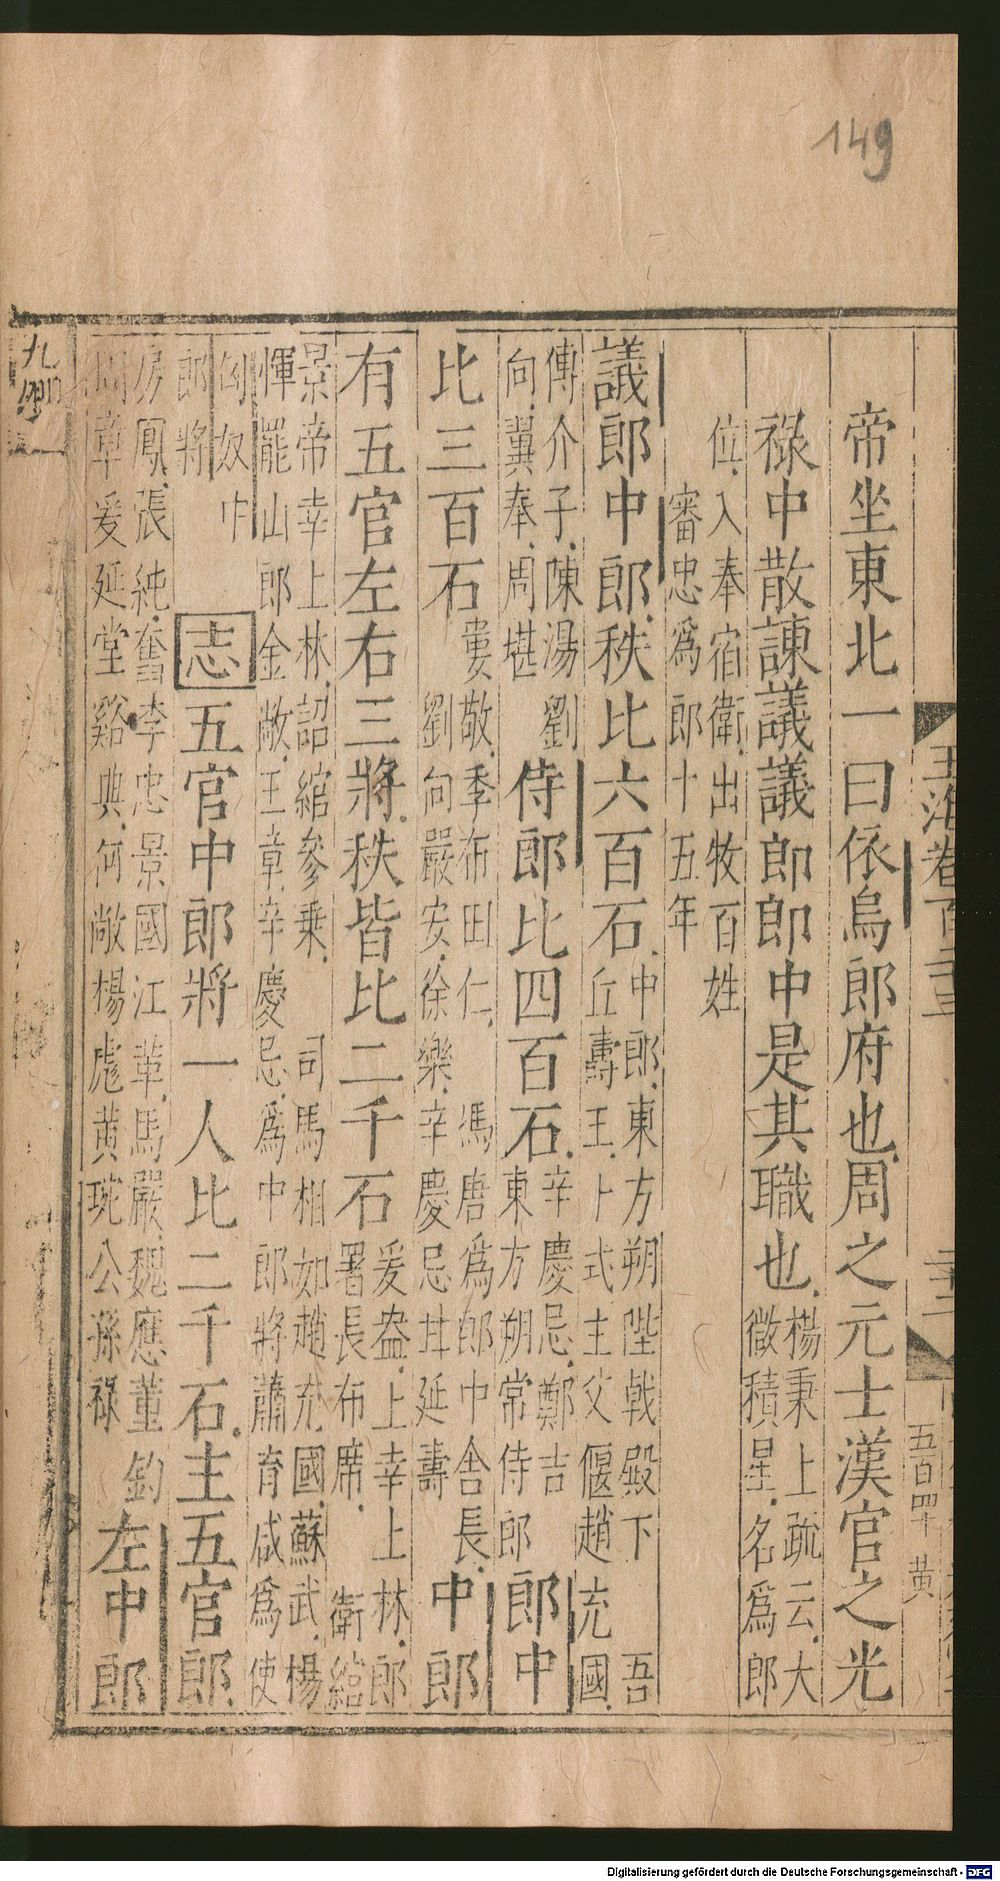 149
玉海卷百二十三
五百四十 黄
帝坐東北一曰依烏郎府也周之元士漢官之光
祿中散諫議議郎郎中是其職也楊秉上疏云大
微積星名爲郎
位入奉宿衛出牧百姓
審忠爲郎十五年
議郎中郎秩比六百石中郎東方朔陛戟殿下 吾
丘壽王卜式主父偃趙充國
傅介子陳湯劉
向翼奉周堪
侍郎比四百石辛慶忌鄭吉
東方朔常侍郎
郎中
比三百石婁敬季布田仁 馮唐爲郎中舍長
劉向嚴安徐樂辛慶忌甘延壽
中郎
有五官左右三將秩皆比二千石爰盎上幸上林郎
署長布席 衛綰
景帝幸上林詔綰參乗 司馬相如趙充國蘇武楊
惲罷山郎金敞王章辛慶忌爲中郎將蕭育咸爲使
匈奴中
郎將
志五官中郎將一人比二千石主五官郎
房鳳張純奮李忠景國江革馬嚴魏應董鈞
周章爰延堂谿典何敞楊彪黄琬公孫祿
左中郎
九卿
Digitalisierung gefördert durch die Deutsche Forschungsgemeinschaft - DFG